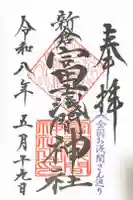 奉拝
全国お浅間さん巡り
新倉
富士浅間神社
令和八年五月十九日